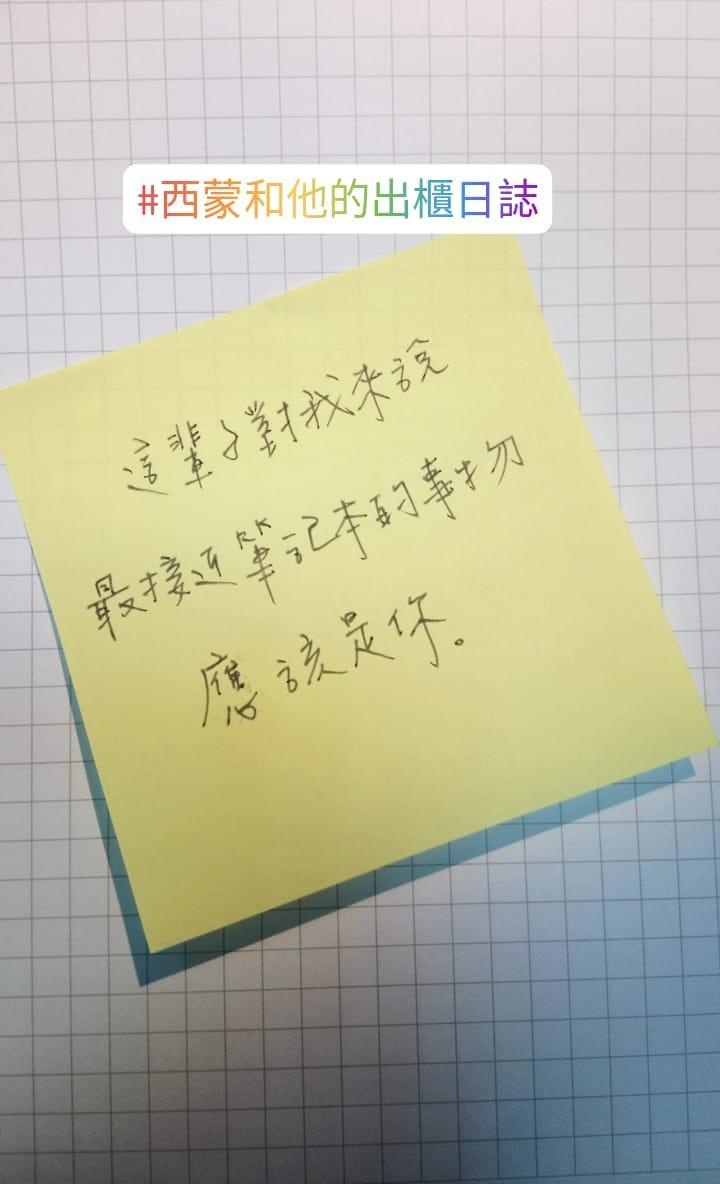 #西蒙和他的出櫃日誌
這輩子對我來說
最接近筆記本的事物
應該是你。